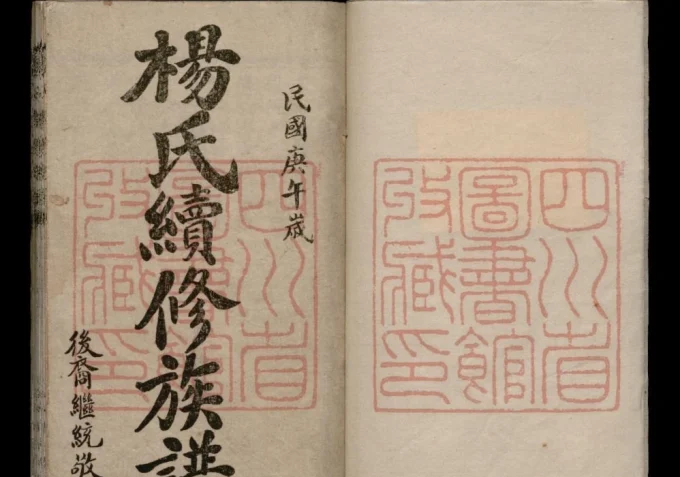 民國庚午歲
楊氏續修族譜
後裔繼統敬
四川省
圖書館
收藏印
四川省
圖書館
收藏印